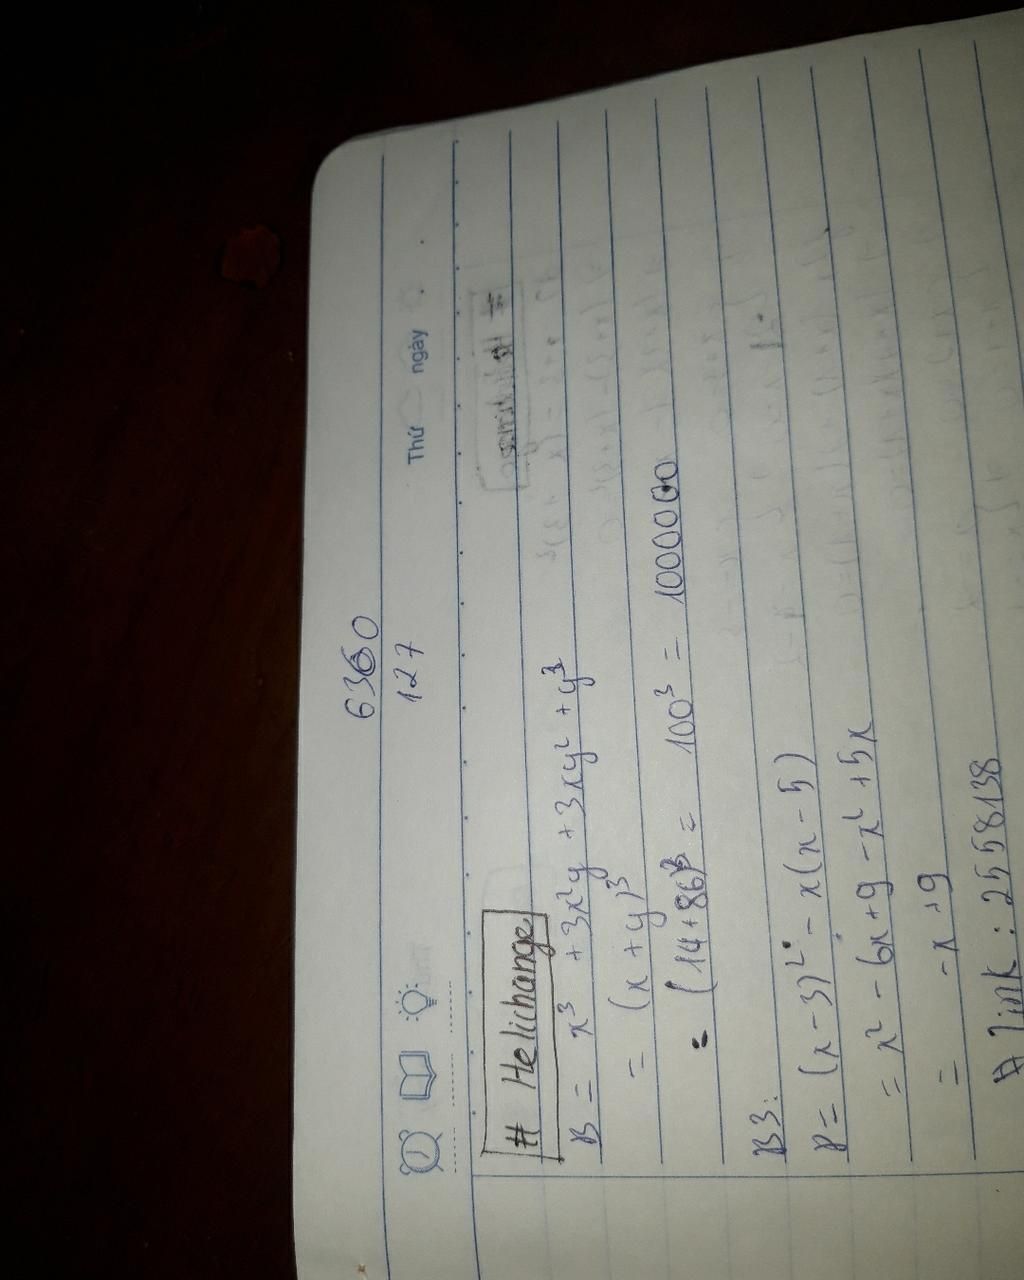 6360
127
Thứ ngày
# Helichange
B = x³ + 3x²y + 3xy² + y³
= (x + y)³
= (14 + 86)³ = 100³ = 1000000
B3:
P = (x - 3)² - x(x - 5)
= x² - 6x + 9 - x² + 5x
= -x + 9
# link: 2558138